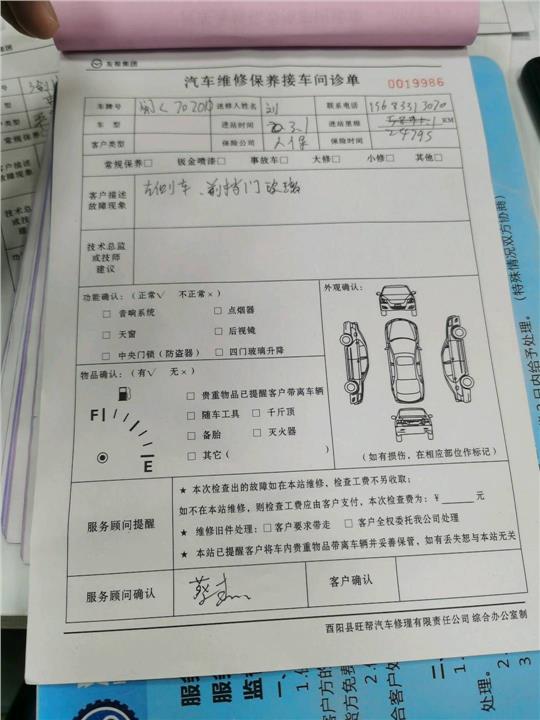 友帮集团
汽车维修保养接车问诊单
0019986
车牌号 送修人姓名 刘 联系电话
车 型 进站时间 进站里程 24795 KM
客户类型 保险公司 人保 保险时间
常规保养□ 钣金喷漆□ 事故车□ 大修□ 小修□ 其他□
客户描述
故障现象
左侧车、前挡门玻璃
技术总监
或技师
建议
功能确认:(正常√ 不正常×) 外观确认:
□ 音响系统 □ 点烟器
□ 天窗 □ 后视镜
□ 中央门锁(防盗器) □ 四门玻璃升降
物品确认:(有√ 无×)
□ 贵重物品已提醒客户带离车辆
F □ 随车工具 □ 千斤顶
□ 备胎 □ 灭火器
E □ 其它( )
(如有损伤,在相应部位作标记)
服务顾问提醒
★ 本次检查出的故障如在本站维修,检查工费不另收取;
如不在本站维修,则检查工费应由客户支付,本次检查费为:¥ 元
★ 维修旧件处理:□ 客户要求带走 □ 客户全权委托我公司处理
★ 本站已提醒客户将车内贵重物品带离车辆并妥善保管,如有丢失恕与本站无关
服务顾问确认 客户确认
酉阳县旺帮汽车修理有限责任公司 综合办公室制
日内给予处理。(特殊情况双方协商)